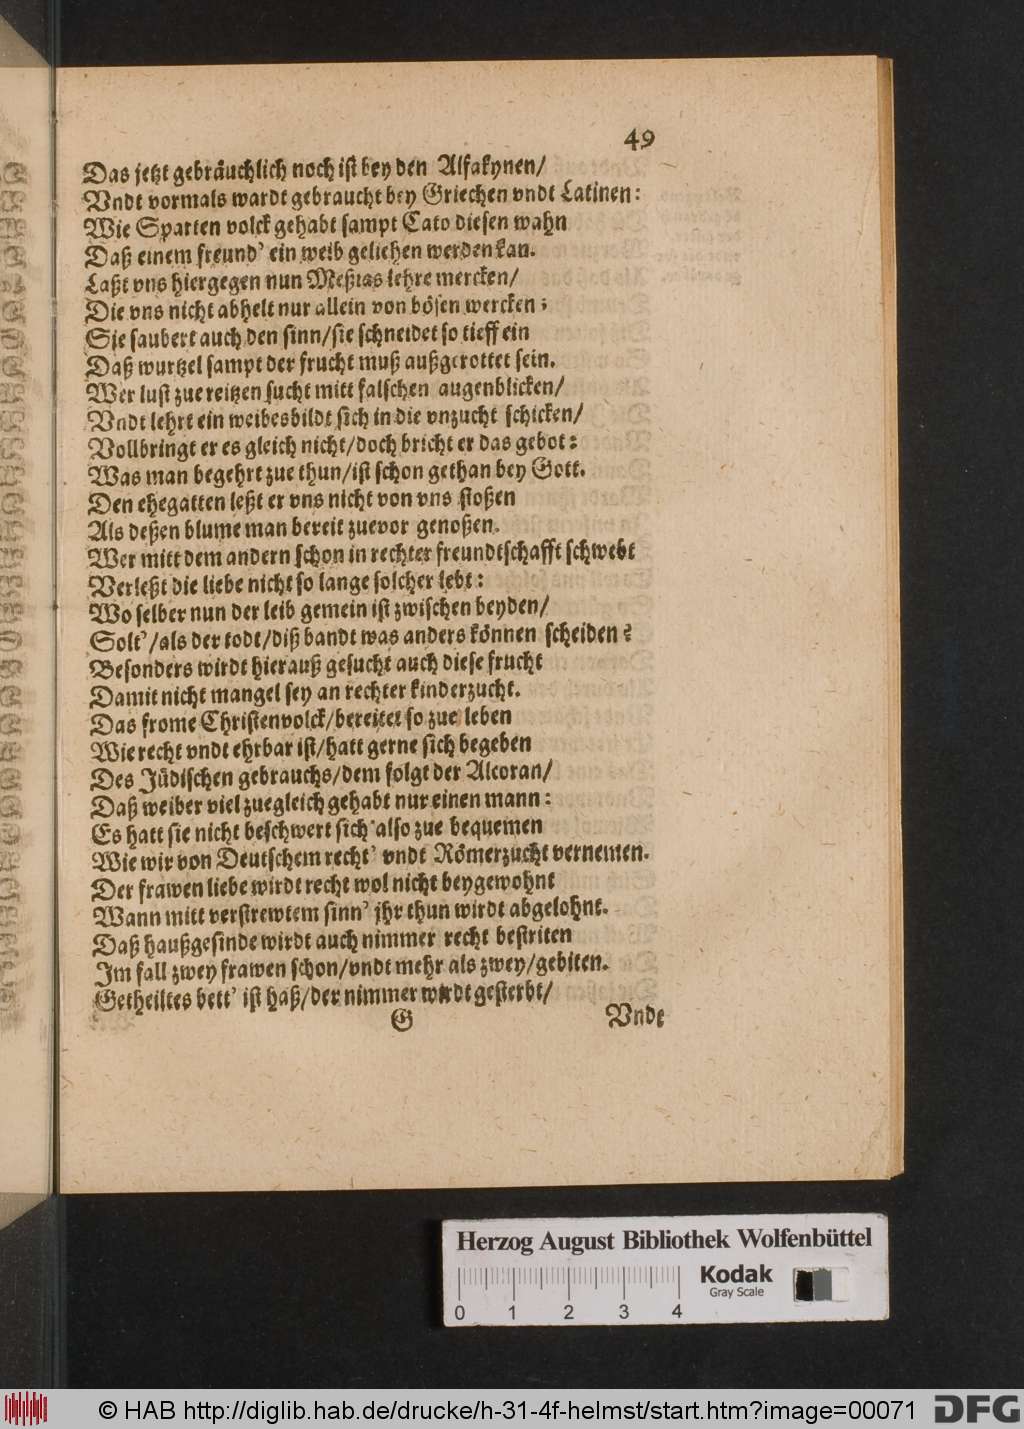 49
Das jetzt gebräuchlich noch ist bey den Alfakynen/
Vndt vormals wardt gebraucht bey Griechen vndt Latinen:
Wie Sparten volck gehabt sampt Cato diesen wahn
Daß einem freund' ein weib geliehen werden kan.
Laßt vns hiergegen nun Meßias lehre mercken/
Die vns nicht abhelt nur allein von bösen wercken;
Sie saubert auch den sinn/sie schneidet so tieff ein
Daß wurtzel sampt der frucht muß außgerottet sein.
Wer lust zue reitzen sucht mitt falschen augenblicken/
Vndt lehrt ein weibesbildt sich in die vnzucht schicken/
Vollbringt er es gleich nicht/doch bricht er das gebot:
Was man begehrt zue thun/ist schon gethan bey Gott.
Den ehegatten leßt er vns nicht von vns stoßen
Als deßen blume man bereit zuevor genoßen.
Wer mitt dem andern schon in rechter freundtschafft schwebt
Verleßt die liebe nicht so lange solcher lebt:
Wo selber nun der leib gemein ist zwischen beyden/
Solt'/als der todt/diß bandt was anders können scheiden?
Besonders wirdt hierauß gesucht auch diese frucht
Damit nicht mangel sey an rechter kinderzucht.
Das frome Christenvolck/bereitet so zue leben
Wie recht vndt ehrbar ist/hatt gerne sich begeben
Des Jüdischen gebrauchs/dem folgt der Alcoran/
Daß weiber viel zuegleich gehabt nur einen mann:
Es hatt sie nicht beschwert sich also zue bequemen
Wie wir von Deutschem recht' vndt Römerzucht vernemen.
Der frawen liebe wirdt recht wol nicht beygewohnt
Wann mitt verstrewtem sinn' jhr thun wirdt abgelohnt.
Daß haußgesinde wirdt auch nimmer recht bestriten
Im fall zwey frawen schon/vndt mehr als zwey/gebiten.
Getheiltes bett' ist haß/der nimmer wirdt gesterbt/
G Vndt
Herzog August Bibliothek Wolfenbüttel
Kodak
Gray Scale
0 1 2 3 4
© HAB http://diglib.hab.de/drucke/h-31-4f-helmst/start.htm?image=00071
DFG